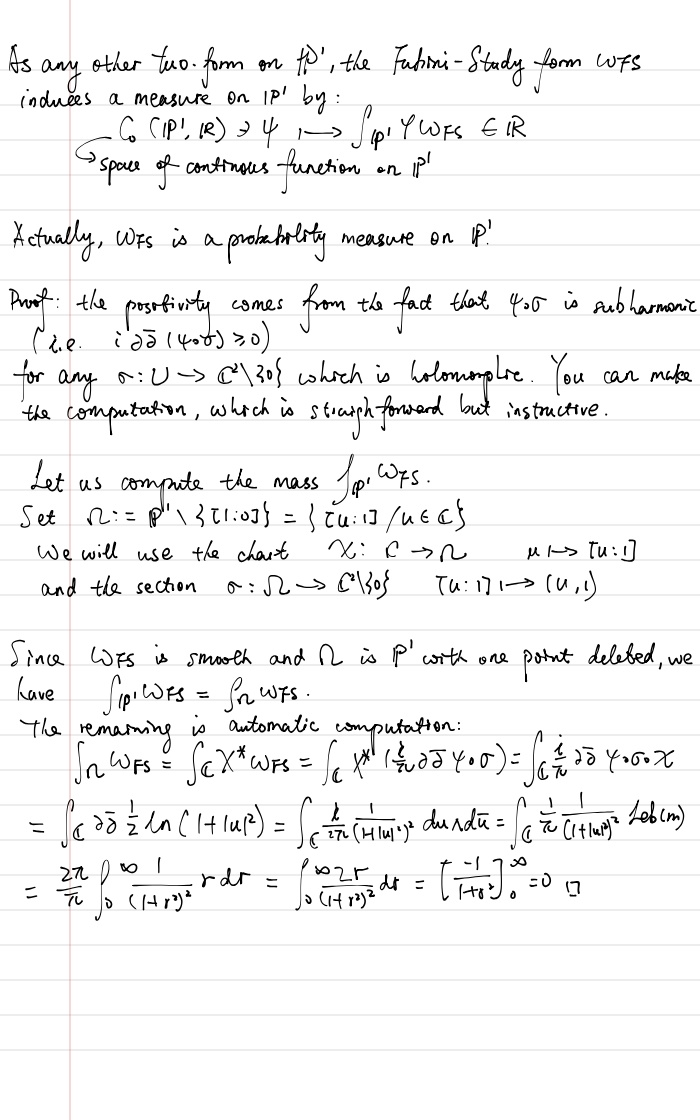 As any other two-form on ℙ¹, the Fubini-Study form ω_FS
induces a measure on ℙ¹ by:
C₀(ℙ¹, ℝ) ∋ Ψ ↦ ∫_ℙ¹ Ψ ω_FS ∈ ℝ
space of continous function on ℙ¹
Actually, ω_FS is a probability measure on ℙ¹.
Proof: the positivity comes from the fact that ψ∘σ is subharmonic
(i.e. i∂∂̄(ψ∘σ) ≥ 0)
for any σ: U → ℂ²\{0} which is holomorphic. You can make
the computation, which is straighforward but instructive.
Let us compute the mass ∫_ℙ¹ ω_FS.
Set Ω := ℙ¹ \ {[1:0]} = {[u:1] / u ∈ ℂ}
We will use the chart χ: ℂ → Ω u ↦ [u:1]
and the section σ: Ω → ℂ²\{0} [u:1] ↦ (u,1)
Since ω_FS is smooth and Ω is ℙ¹ with one point deleted, we
have ∫_ℙ¹ ω_FS = ∫_Ω ω_FS.
The remaining is automatic computation:
∫_Ω ω_FS = ∫_ℂ χ* ω_FS = ∫_ℂ χ* (i/π ∂∂̄ ψ∘σ) = ∫_ℂ i/π ∂∂̄ ψ∘σ∘χ
= ∫_ℂ ∂∂̄ 1/2 ln(1+|u|²) = ∫_ℂ i/2π 1/(1+|u|²)² du∧dū = ∫_ℂ 1/π 1/(1+|u|²)² Leb(m)
= 2π/π ∫₀^∞ 1/(1+r²)² r dr = ∫₀^∞ 2r/(1+r²)² dr = [-1/(1+r²)]₀^∞ = 0 □